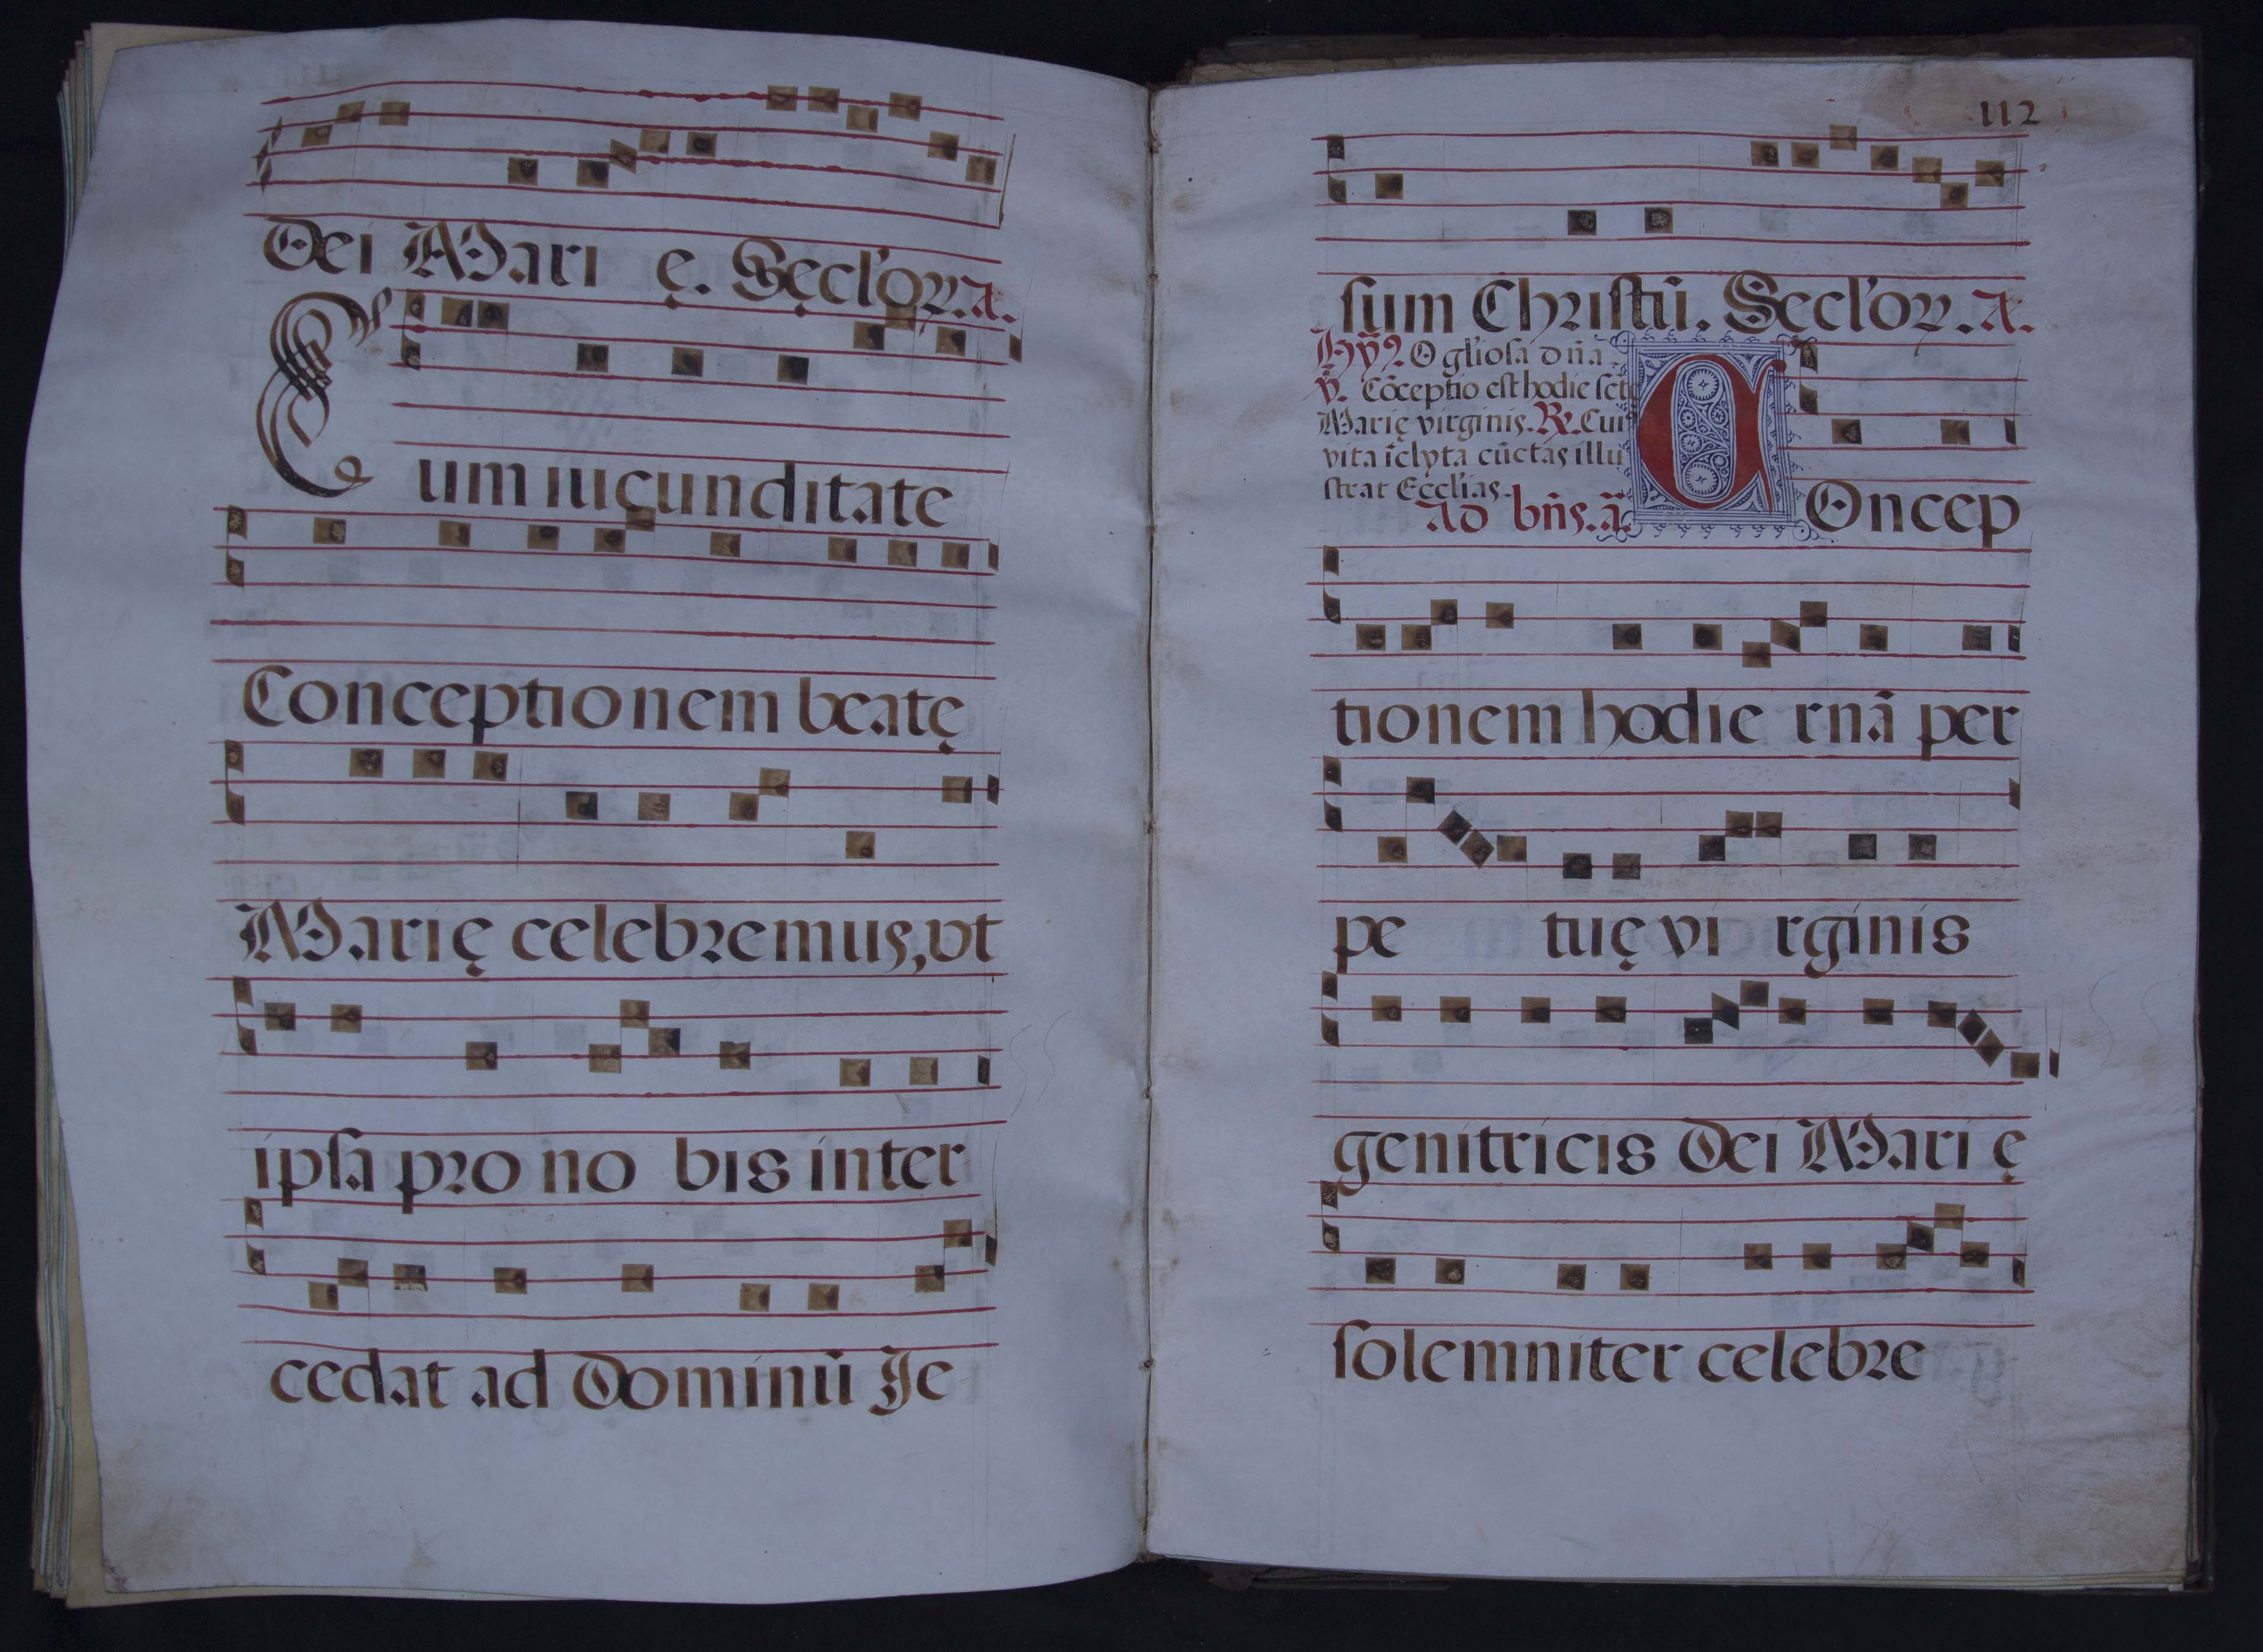 Dei Mari ę. Sęcl'oꝝ. a.
Cum iucunditate
Conceptionem beatę
Marię celebremus, vt
ipſa pro no bis inter
cedat ad Dominū Je
112
ſum Chriſtū. Sęcl'oꝝ. a.
Hỹ. O gl'ioſa dn̄a.
℣. Cōceptio est hodie ſctę
Marię virginis. ℟. Cui⁹
vita īclyta cūctas illu
ſtrat Eccl'ias.
Ad bn̄s. ā.
COncep
tionem hodie rnā per
pe tuę vi rginis
genitricis Dei Mari ę
ſolemniter celebre